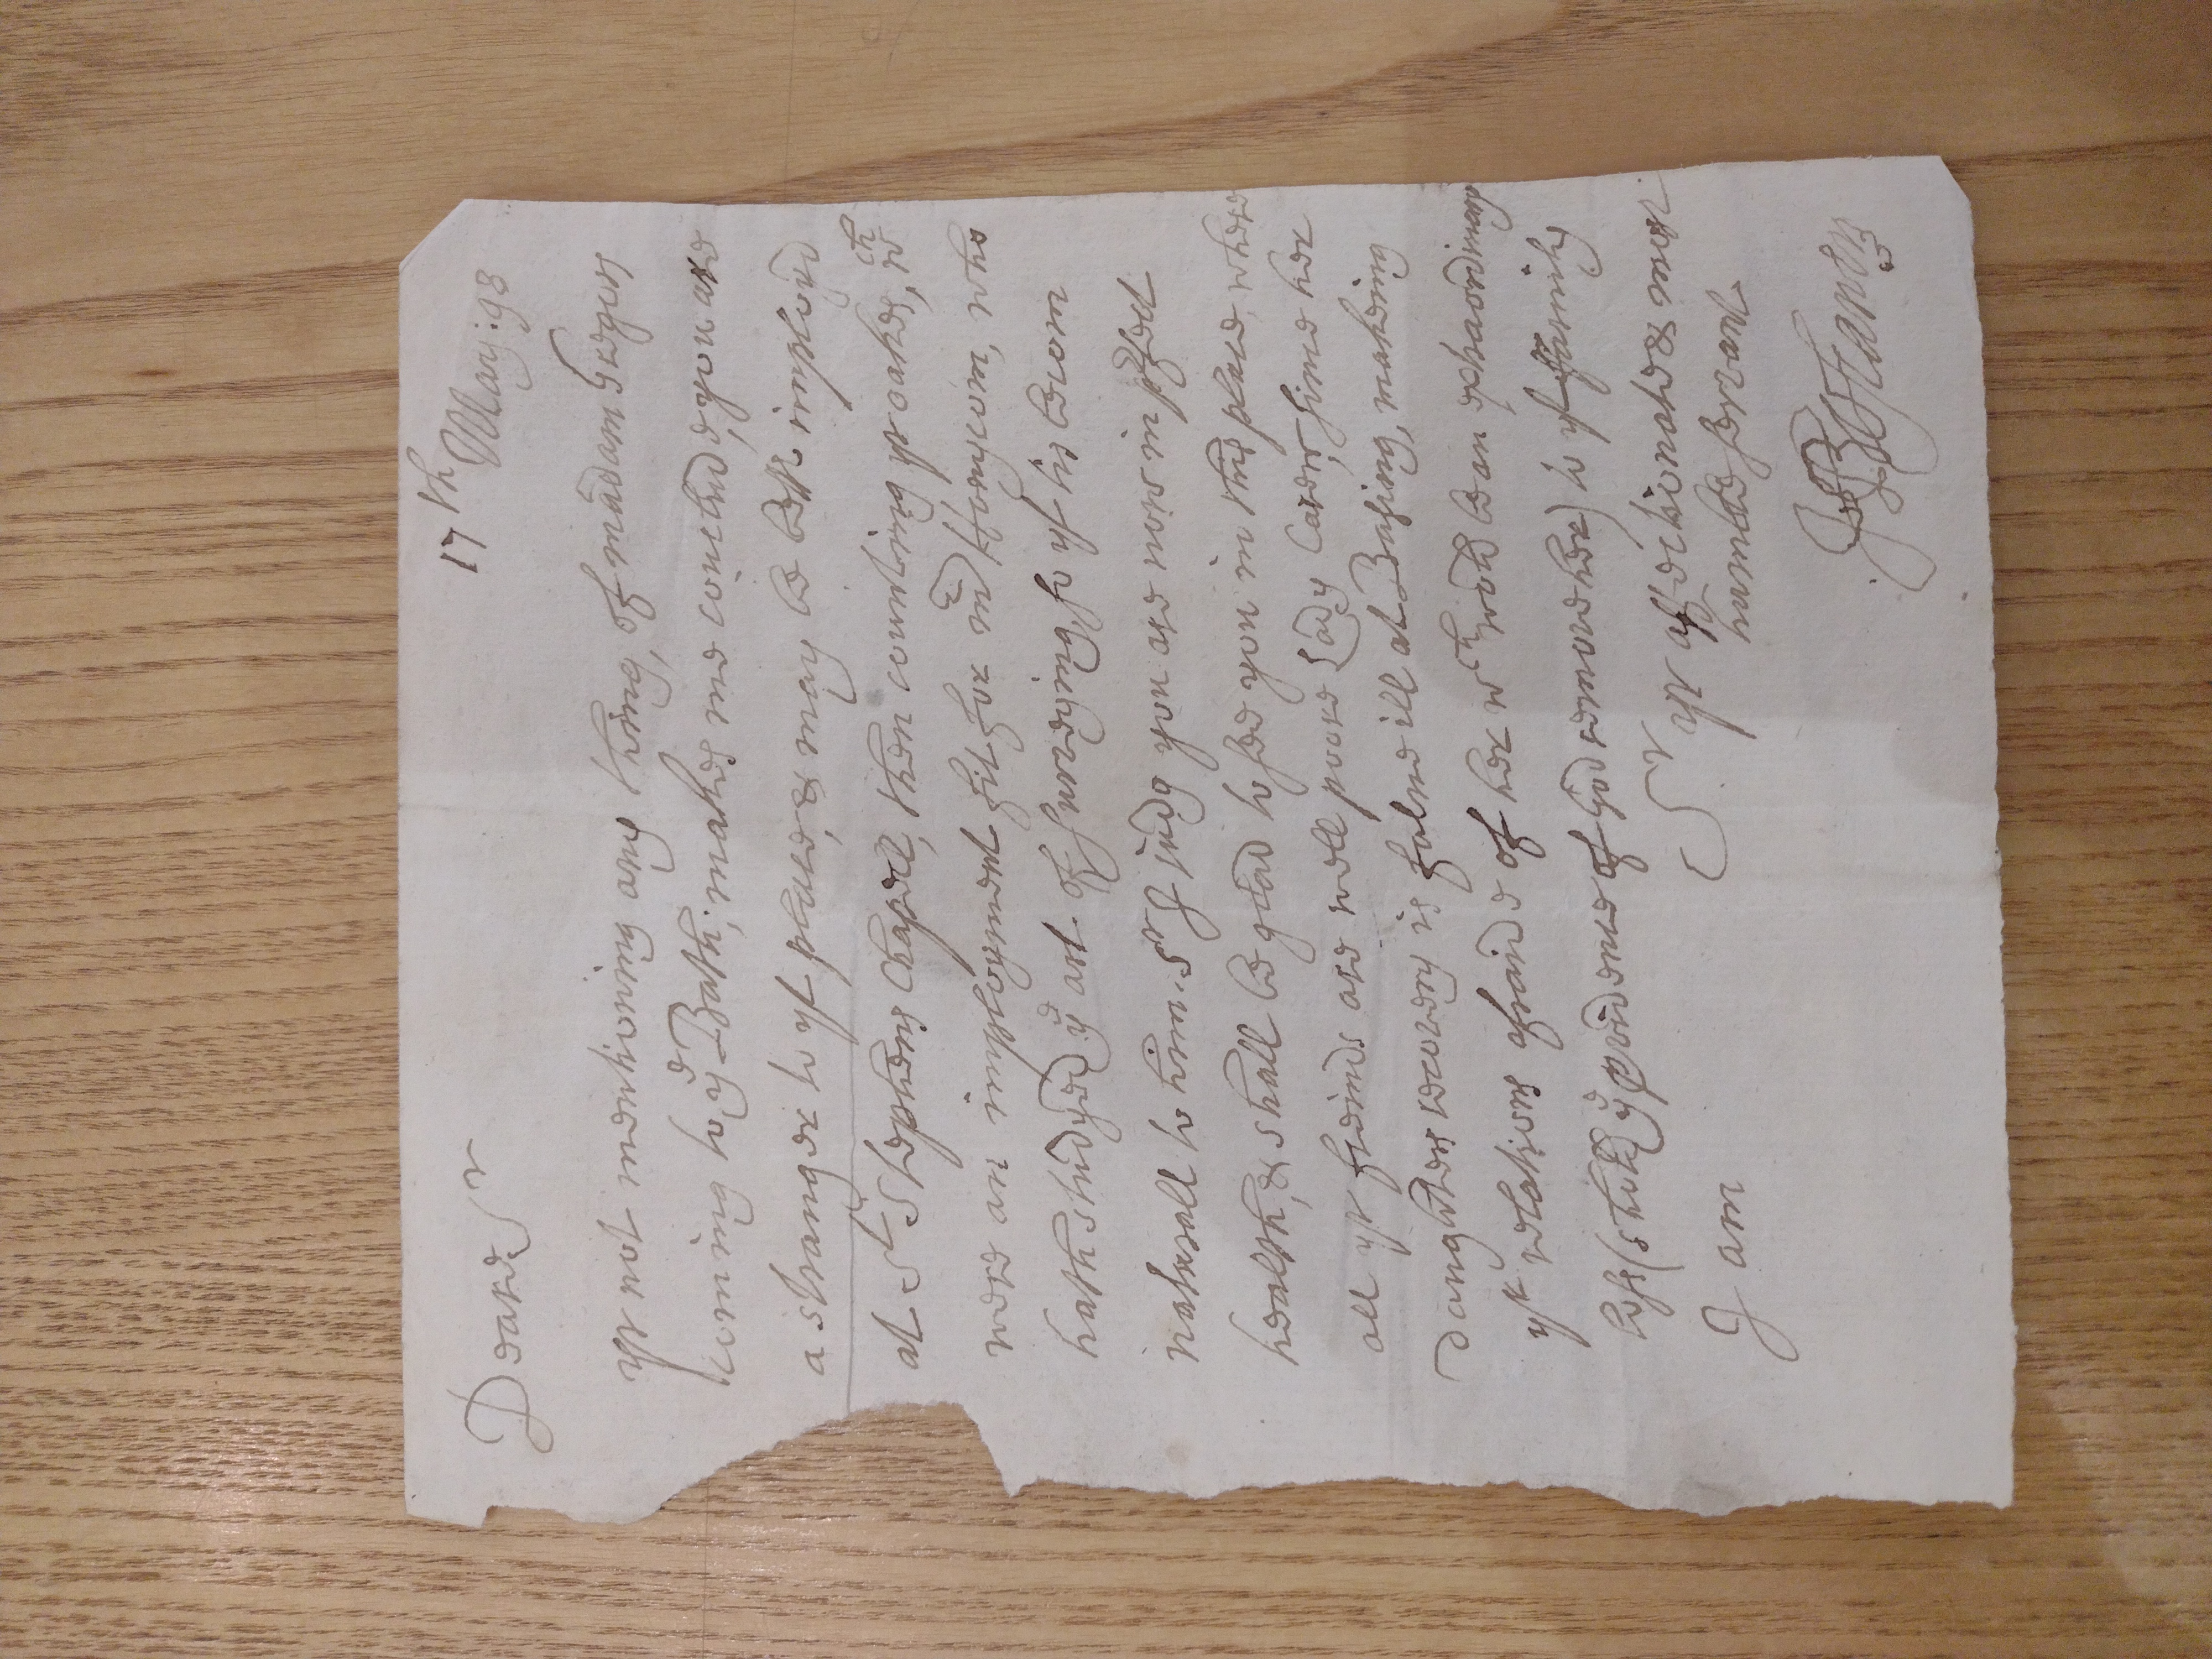 17th May: 98
Deare Sr
yr not mentioning any thing, of madam Gregors
coming to ye Bath; makes me conclude, you are
a stranger to yt place, & may be bettr imployd
at St Stephens Chapell, then counting yr oakes, wch
were an imployment fit for mr Honycom, who
hath studyed ye art of surveying, so yt tis becom
naturall to him. Sr I judg you are now in pfect
health, & shall be glad to see you in this place, where
all yr freinds are well poore Lady Carew, since her
daughters recovery is falne ill at Basing, makeing
yt relations afraide of her wch wold be an extraordinary
loss (shold ye pvidence of God remove her) to yt family
I am
Sr yr affectionate & most
humble servant